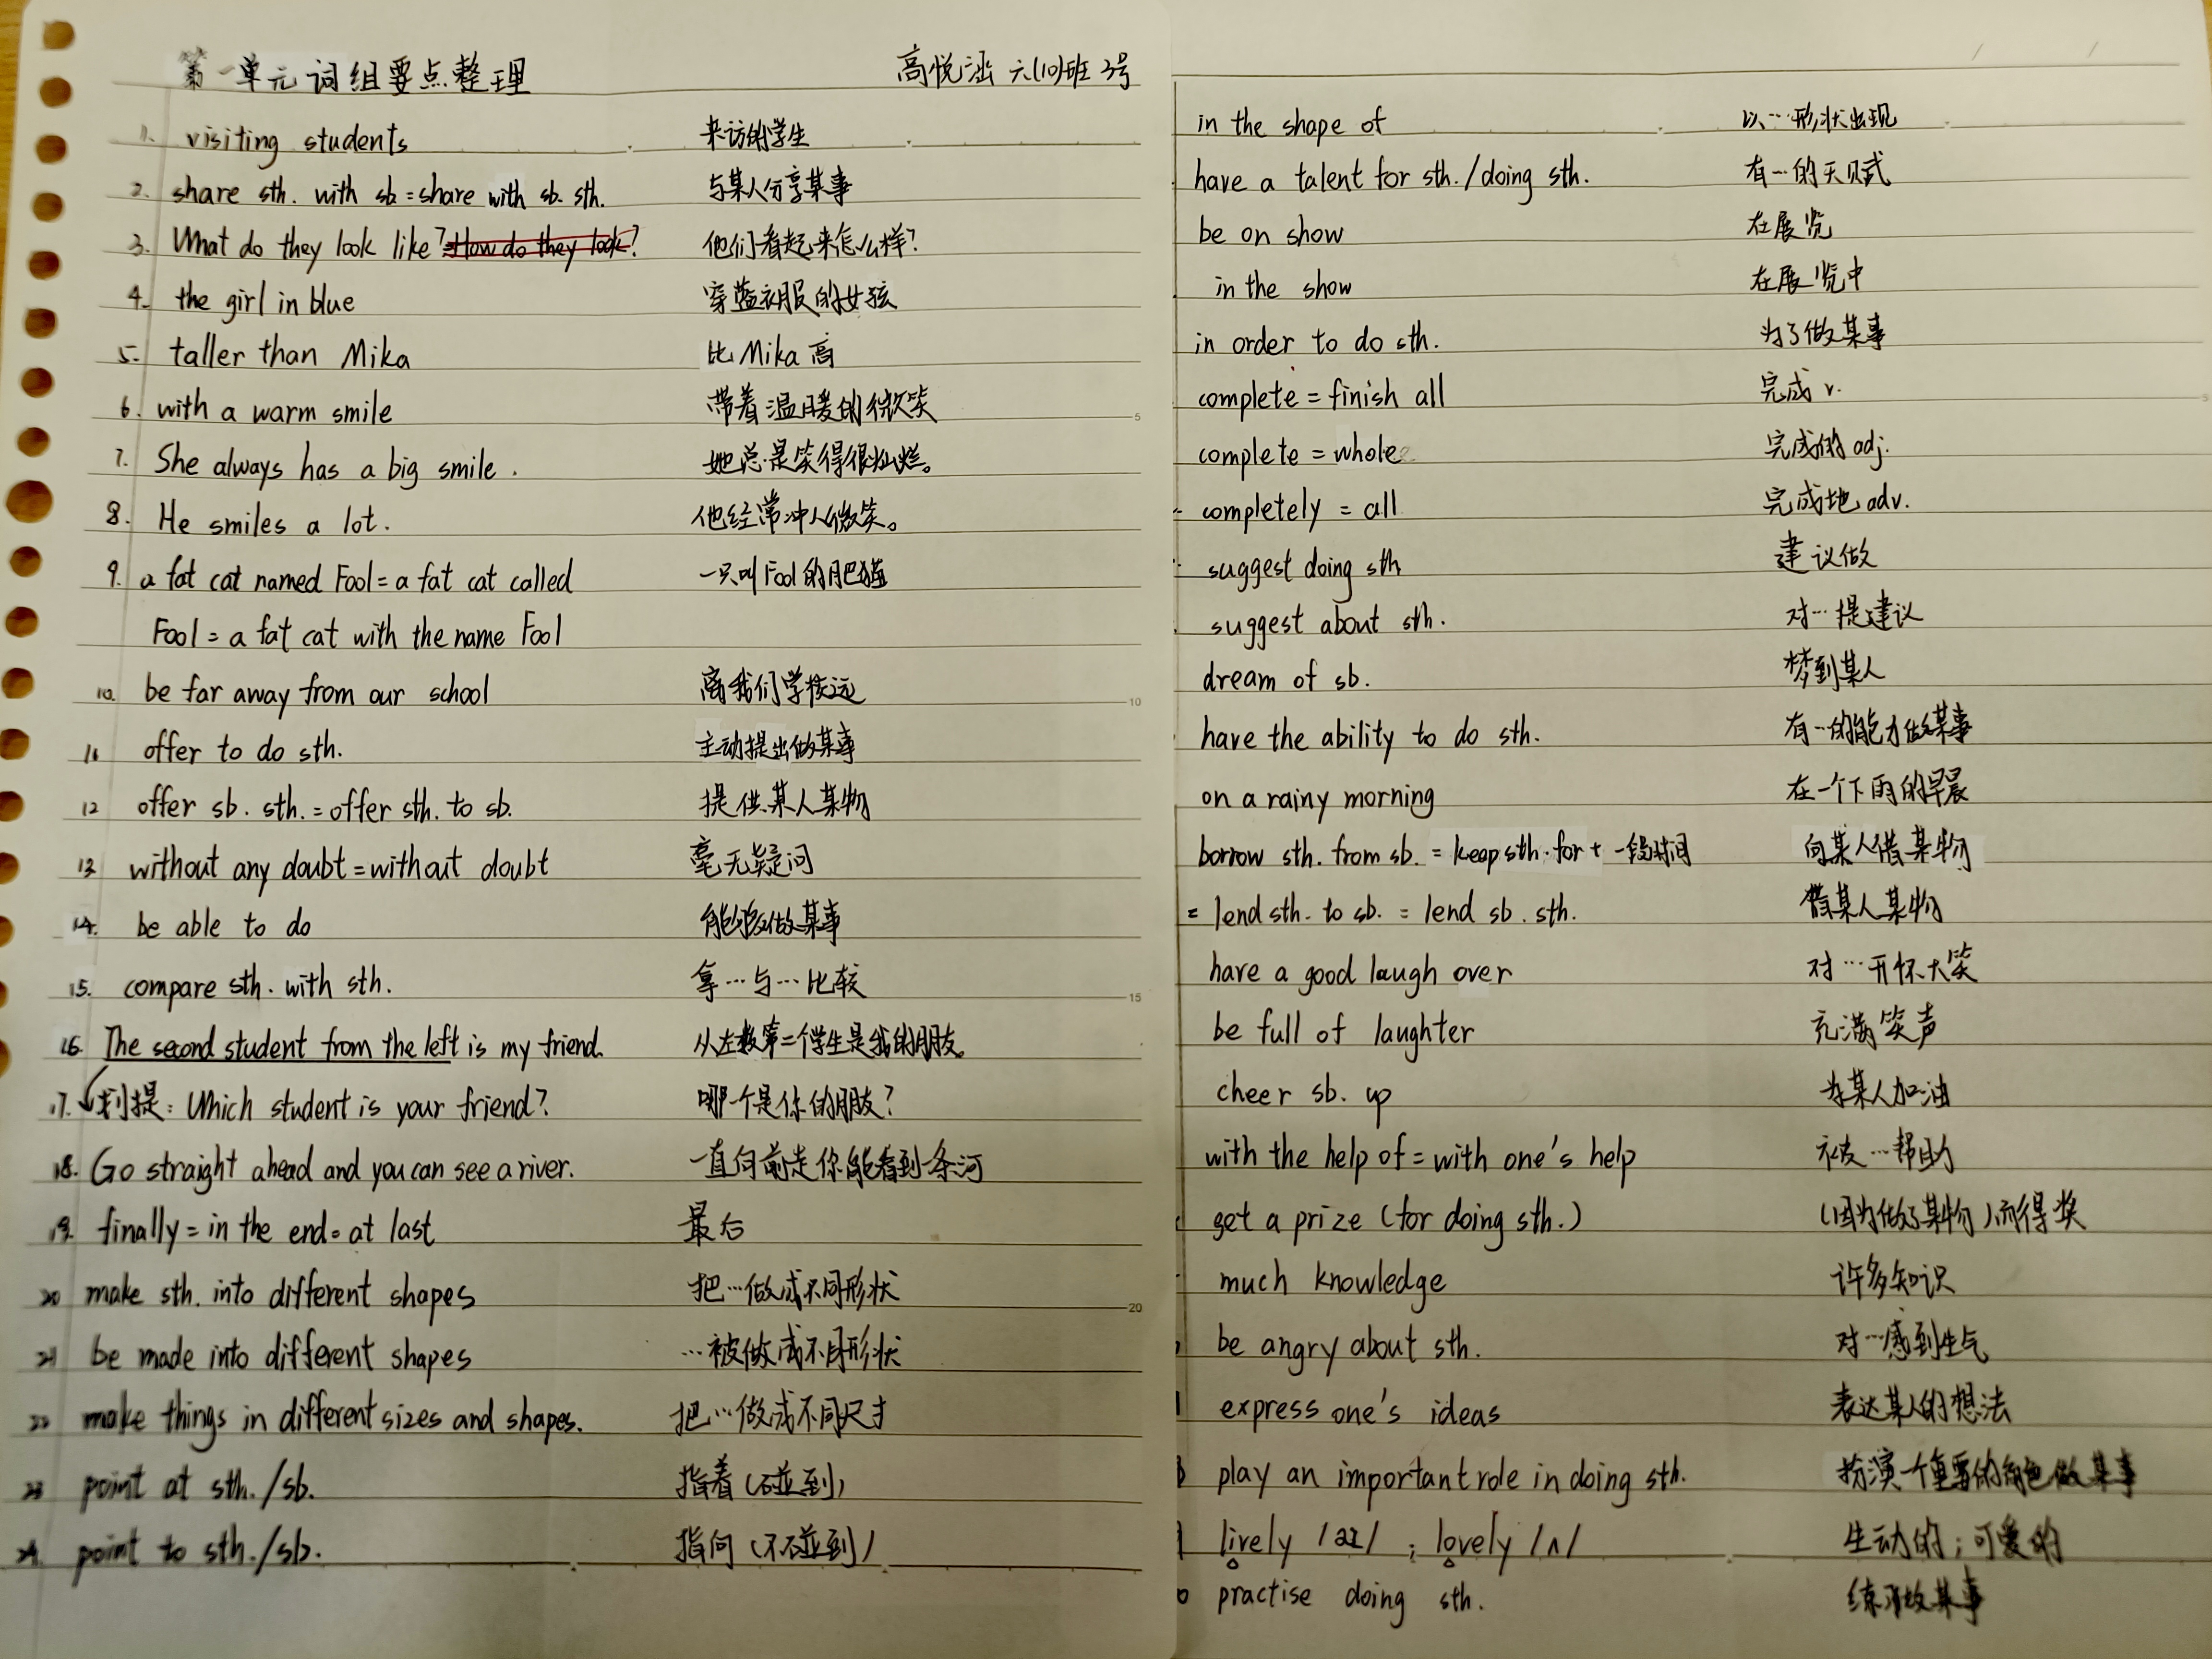 第一单元词组要点整理 高悦涵 六(10)班 3号
1. visiting students 来访的学生
2. share sth. with sb = share with sb. sth. 与某人分享某事
3. What do they look like? =How do they look? 他们看起来怎么样?
4. the girl in blue 穿蓝衣服的女孩
5. taller than Mika 比Mika高
6. with a warm smile 带着温暖的微笑
7. She always has a big smile. 她总是笑得很灿烂。
8. He smiles a lot. 他经常冲人微笑。
9. a fat cat named Fool = a fat cat called 一只叫Fool的肥猫
Fool = a fat cat with the name Fool
10. be far away from our school 离我们学校远
11. offer to do sth. 主动提出做某事
12 offer sb. sth. = offer sth. to sb. 提供某人某物
13 without any doubt = without doubt 毫无疑问
14. be able to do 能够做某事
15. compare sth. with sth. 拿…与…比较
16. The second student from the left is my friend. 从左数第二个学生是我的朋友。
17. 划提: Which student is your friend? 哪个是你的朋友?
18. Go straight ahead and you can see a river. 一直向前走你能看到一条河
19. finally = in the end = at last 最后
20 make sth. into different shapes 把…做成不同形状
21 be made into different shapes …被做成不同形状
22 make things in different sizes and shapes. 把…做成不同尺寸
23 point at sth./sb. 指着(碰到)
24. point to sth./sb. 指向(不碰到)
in the shape of 以…形状出现
have a talent for sth./doing sth. 有…的天赋
be on show 在展览
in the show 在展览中
in order to do sth. 为了做某事
complete = finish all 完成 v.
complete = whole 完成的 adj.
completely = all 完成地 adv.
suggest doing sth 建议做
suggest about sth. 对…提建议
dream of sb. 梦到某人
have the ability to do sth. 有…的能力做某事
on a rainy morning 在一个下雨的早晨
borrow sth. from sb. = keep sth. for + 一段时间 向某人借某物
= lend sth. to sb. = lend sb. sth. 借某人某物
have a good laugh over 对…开怀大笑
be full of laughter 充满笑声
cheer sb. up 为某人加油
with the help of = with one's help 被…帮助
get a prize (for doing sth.) (因为做了某物)而得奖
much knowledge 许多知识
be angry about sth. 对…感到生气
express one's ideas 表达某人的想法
play an important role in doing sth. 扮演一个重要的角色做某事
lively /aɪ/ ; lovely /ʌ/ 生动的;可爱的
practise doing sth. 练习做某事